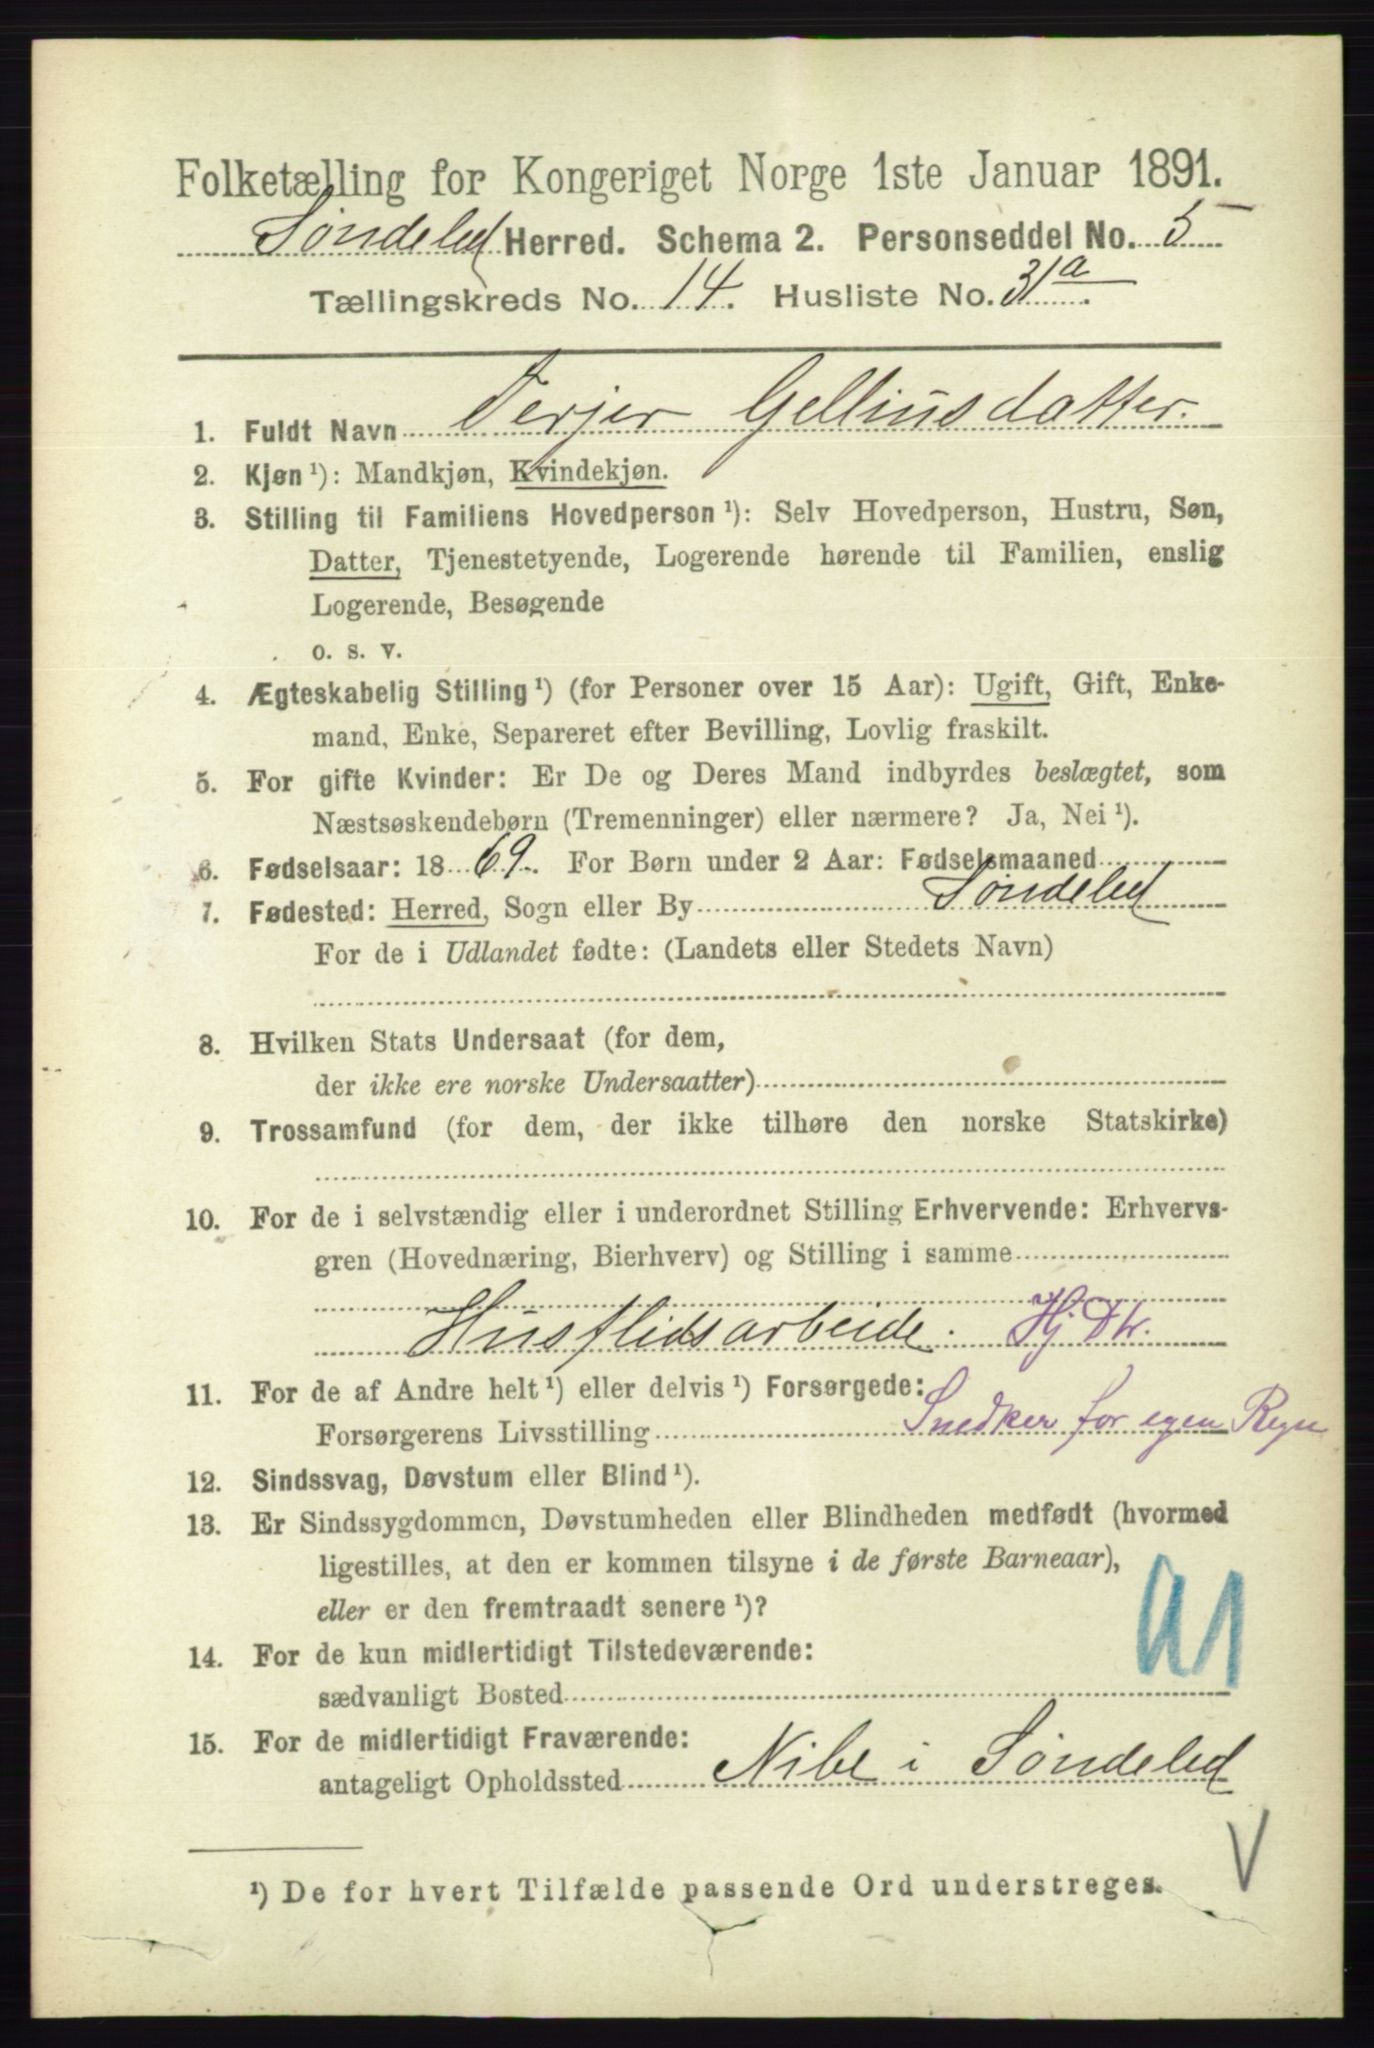 Folketælling for Kongeriget Norge 1ste Januar 1891.
Søndeled Herred. Schema 2. Personseddel No. 5
Tællingskreds No. 14. Husliste No. 31a.
1. Fuldt Navn Terjer Gelliusdatter.
2. Kjøn ¹): Mandkjøn, Kvindekjøn.
3. Stilling til Familiens Hovedperson ¹): Selv Hovedperson, Hustru, Søn,
Datter, Tjenestetyende, Logerende hørende til Familien, enslig
Logerende, Besøgende
o. s. v.
4. Ægteskabelig Stilling ¹) (for Personer over 15 Aar): Ugift, Gift, Enke-
mand, Enke, Separeret efter Bevilling, Lovlig fraskilt.
5. For gifte Kvinder: Er De og Deres Mand indbyrdes beslægtet, som
Næstsøskendebørn (Tremenninger) eller nærmere? Ja, Nei ¹).
6. Fødselsaar: 1869. For Børn under 2 Aar: Fødselsmaaned
7. Fødested: Herred, Sogn eller By Søndeled
For de i Udlandet fødte: (Landets eller Stedets Navn)
8. Hvilken Stats Undersaat (for dem,
der ikke ere norske Undersaatter)
9. Trossamfund (for dem, der ikke tilhøre den norske Statskirke)
10. For de i selvstændig eller i underordnet Stilling Erhvervende: Erhvervs-
gren (Hovednæring, Bierhverv) og Stilling i samme
Husflidsarbeide. Hj. Dtr.
11. For de af Andre helt ¹) eller delvis ¹) Forsørgede:
Forsørgerens Livsstilling Snedker for egen Regn
12. Sindssvag, Døvstum eller Blind ¹).
13. Er Sindssygdommen, Døvstumheden eller Blindheden medfødt (hvormed
ligestilles, at den er kommen tilsyne i de første Barneaar),
eller er den fremtraadt senere ¹)?
a1
14. For de kun midlertidigt Tilstedeværende:
sædvanligt Bosted
15. For de midlertidigt Fraværende:
antageligt Opholdssted Nibe i Søndeled
V
¹) De for hvert Tilfælde passende Ord understreges.